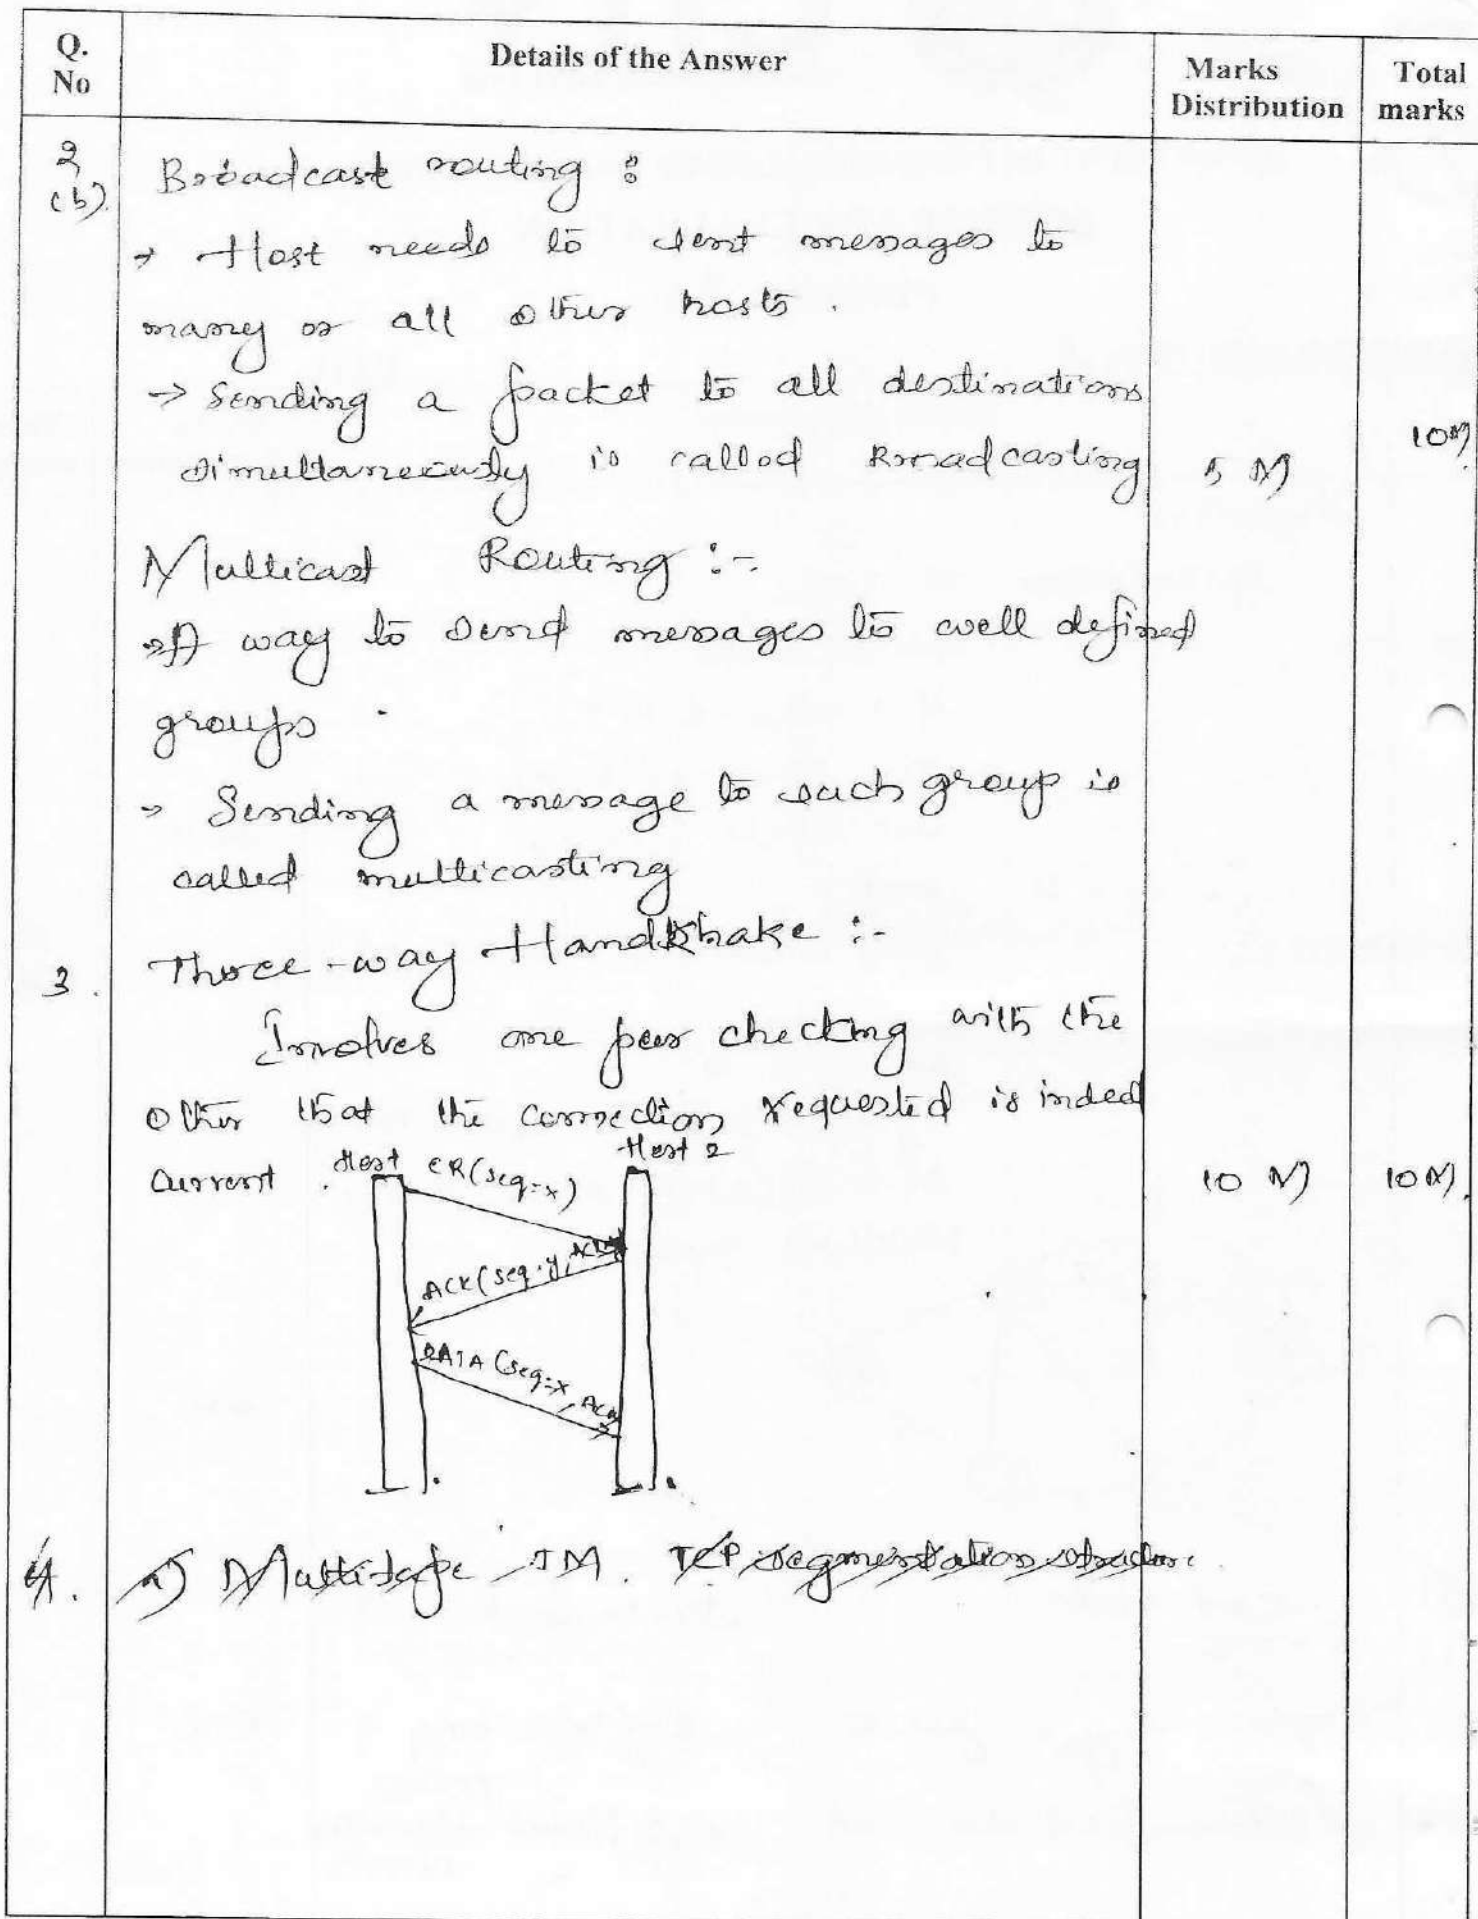 Q. No
Details of the Answer
Marks Distribution
Total marks
2 (b).
Broadcast routing :
→ Host needs to sent messages to
many or all other hosts .
→ Sending a packet to all destinations
simultaneously is called Broadcasting
5 M
10M.
Multicast Routing :-
→ A way to send messages to well defined
groups .
→ Sending a message to such group is
called multicasting
3 .
Three-way Handshake :-
Involves one peer checking with the
other that the connection requested is inded
current .
Host
CR(seq=x)
Host 2
ACK(seq=y,
DATA (seq=x,
10 M
10M.
4. a) Multitape TM. TCP segmentation structure